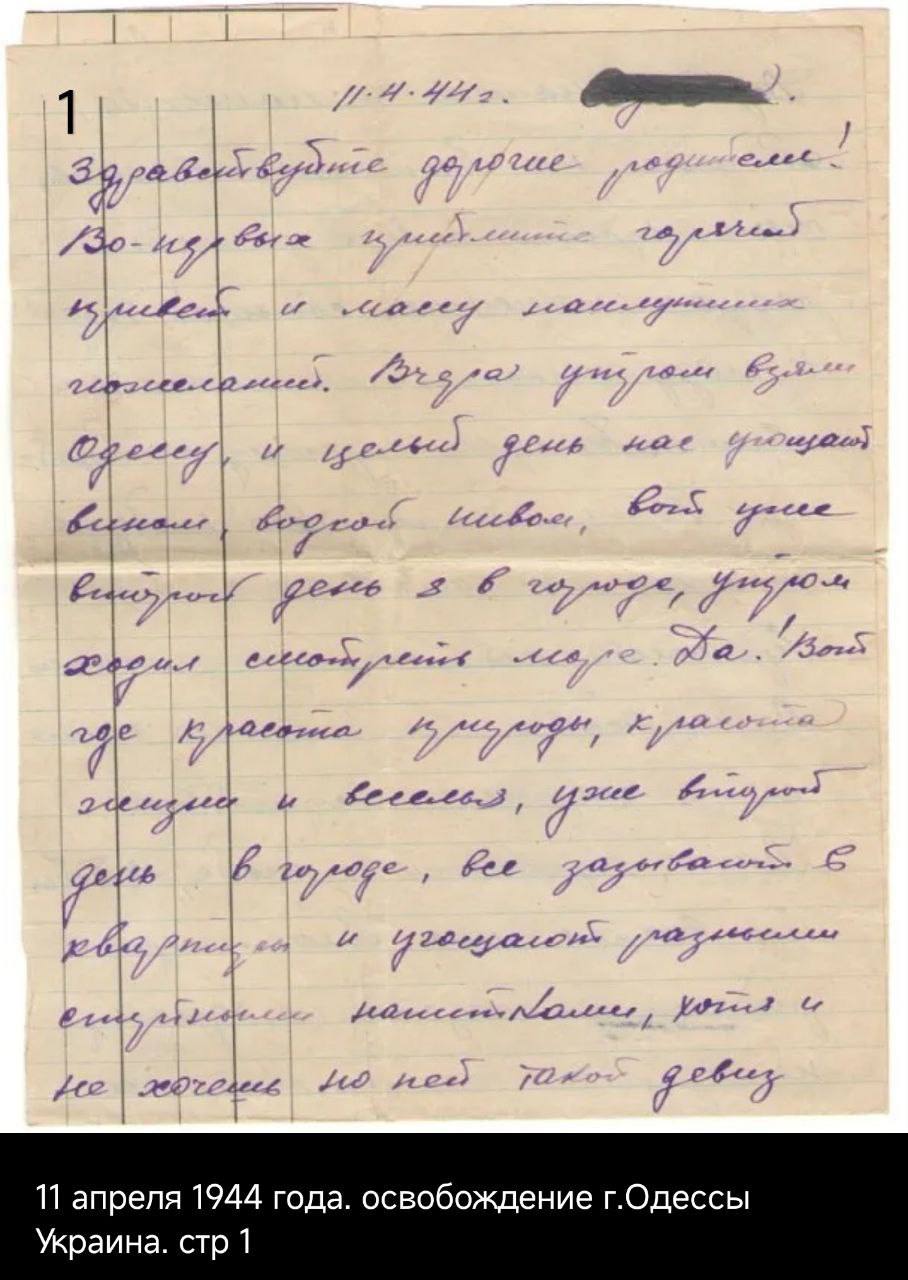 1
11.4.44 г.
Здравствуйте дорогие родители!
Во-первых примите горячий
привет и массу наилучших
пожеланий. Вчера утром взяли
Одессу, и целый день нас угощают
вином, водкой пивом, вот уже
второй день я в городе, утром
ходил смотреть море. Да! Вот
где красота природы, красота
жизни и веселья, уже второй
день в городе, все зазывают в
квартиры и угощают разными
спиртными напитками, хотя и
не хочешь но пей такой девиз
11 апреля 1944 года. освобождение г.Одессы
Украина. стр 1